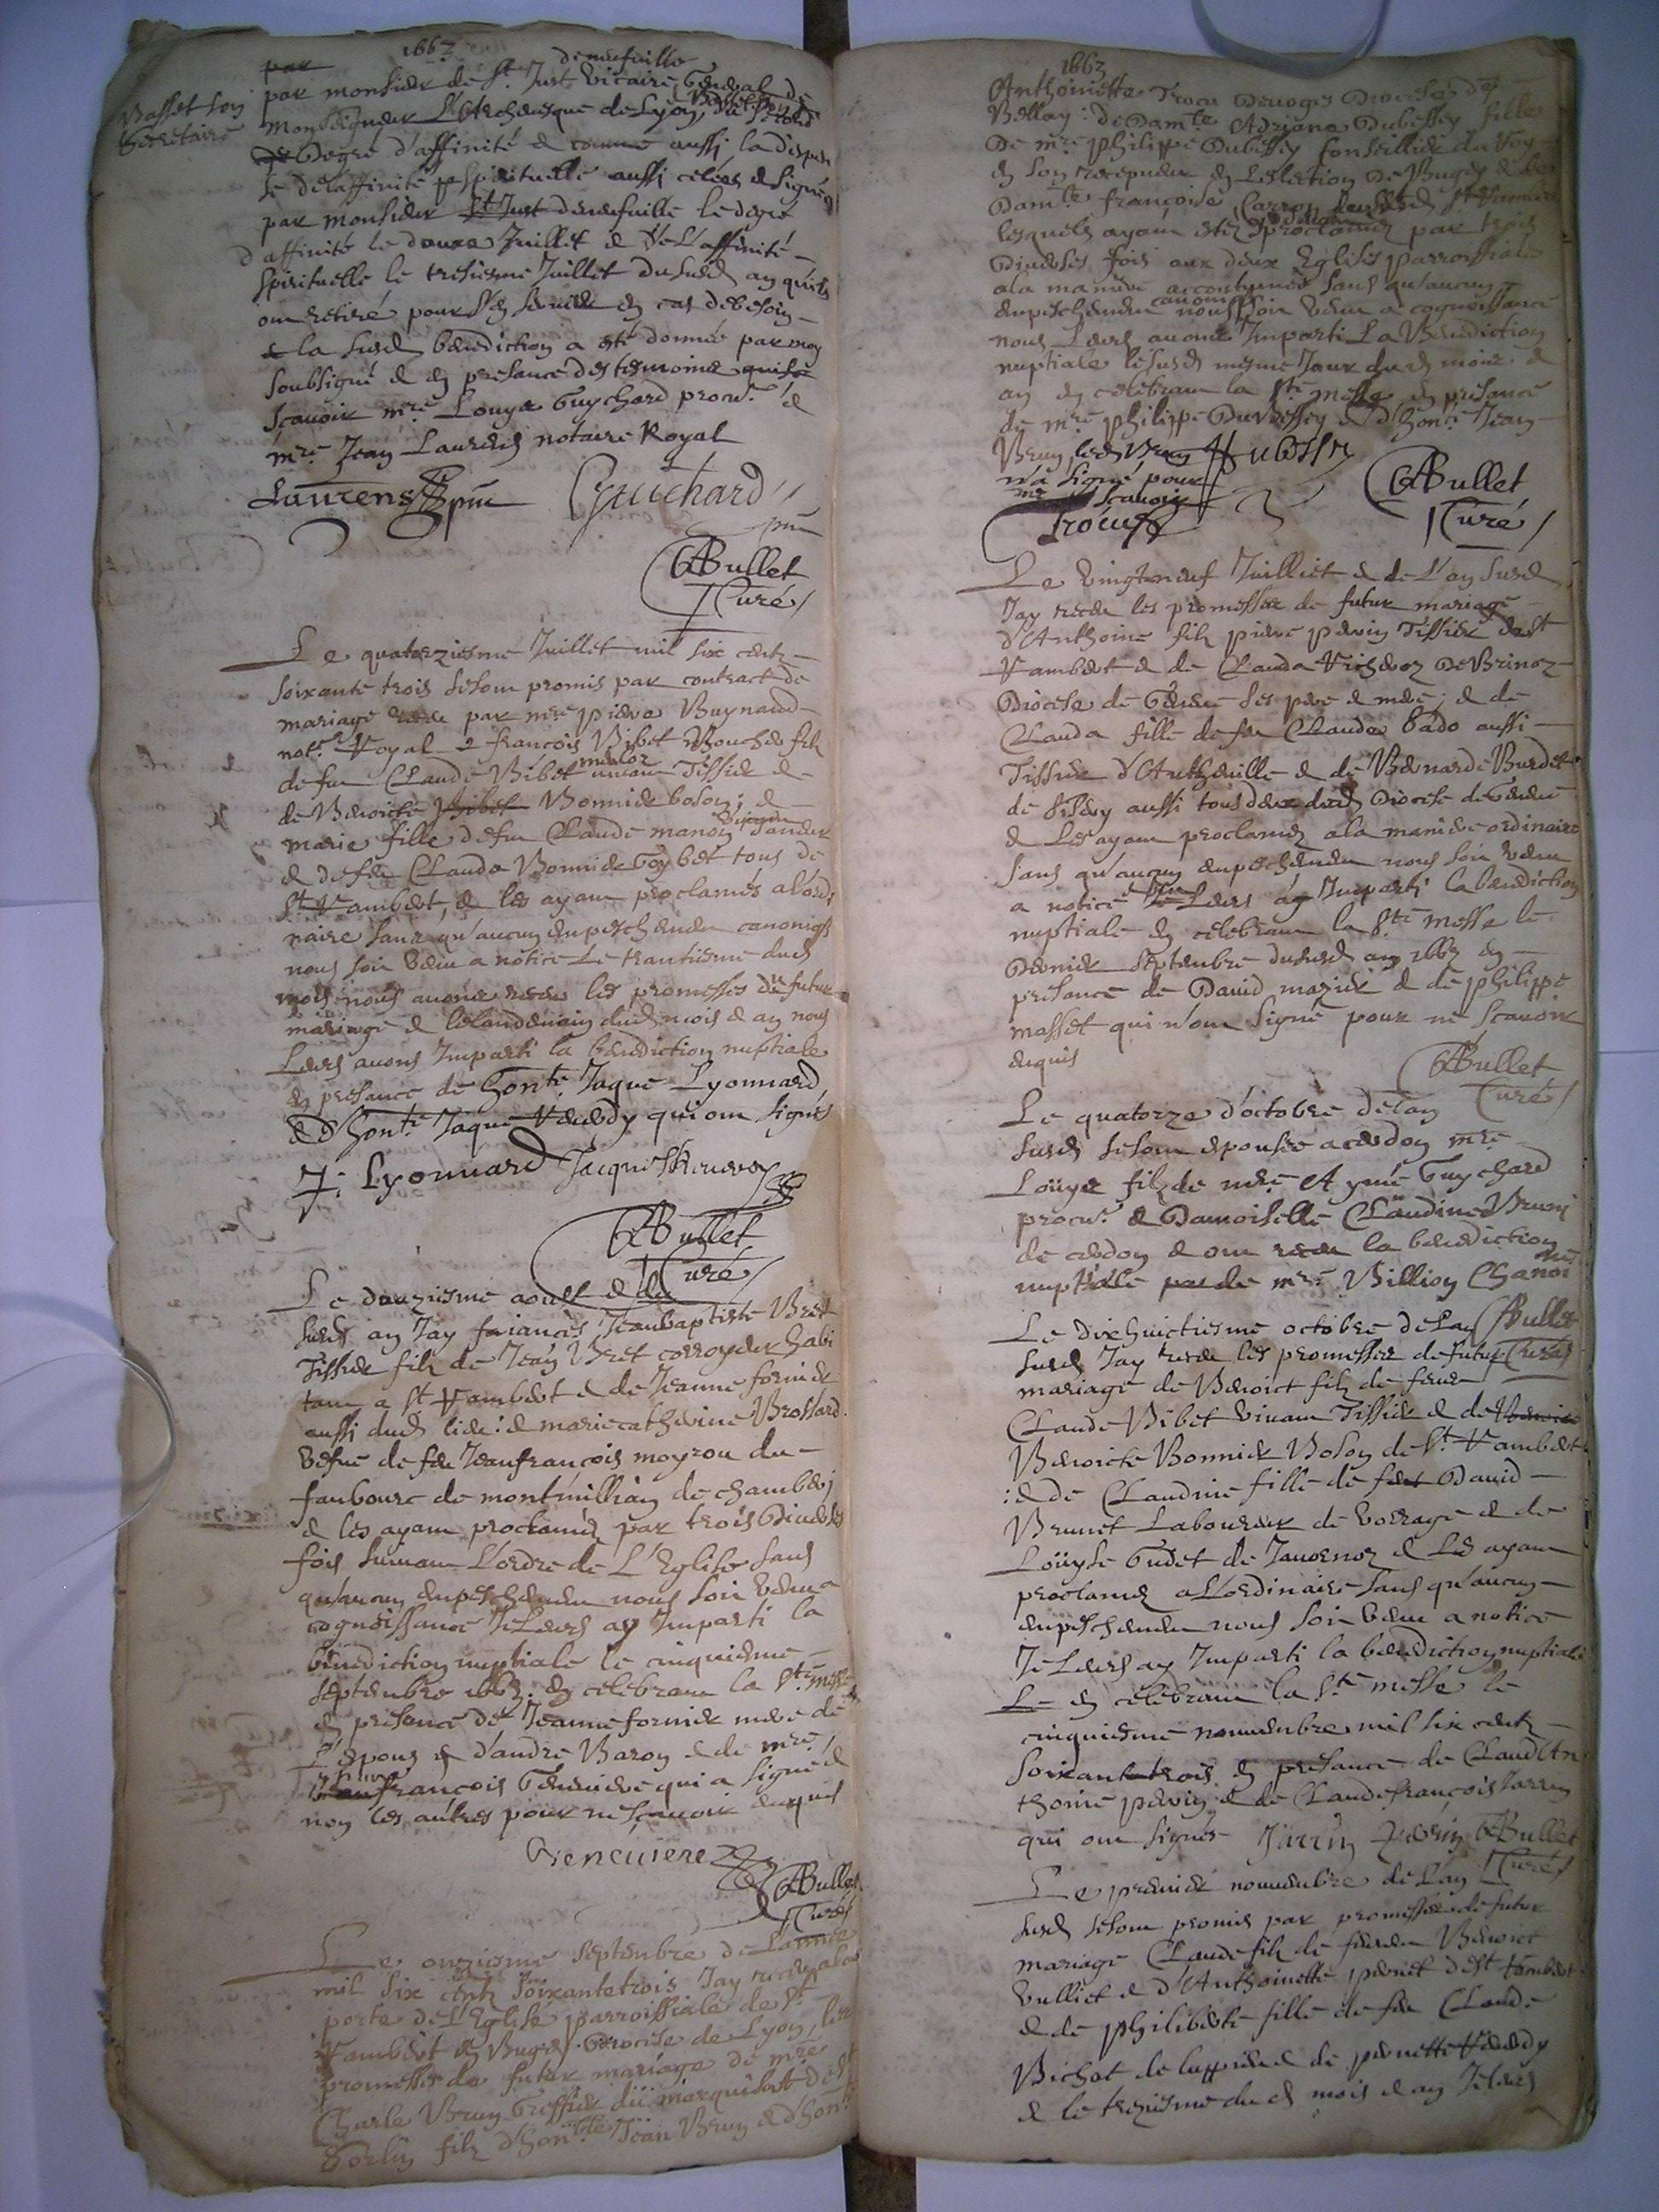 1663
par
deneufuille
par monsieur de St. Just vicaire General de
Monseigneur L'Archeuesque de Lyon, du second
Basset son
Secretaire
Degré d'affinité & comme aussi la dispen
se de laffinité spirituelle aussi celéés & signéés
par monsieur St Just deneufuille le degré
d'affinité le douze Juillet & de L'affinité
spirituelle le tresiesme Juillet du susd an qu'ils
ont retiré pour s'en seruir en cas de besoin
& la susd benediction a esté donnée par moy
soubsigné & en presance des tesmoins
scauoir mre Louys Guychard procur. &
mre Jean Laurens notaire Royal
Laurens pnt
Guichard
pnt
ABullet
Curé
Le quatorziesme Juillet mil six centz
soixante trois se sont promis par contract de
mariage receu par mre Pierre Buynand
notre Royal françois Bibet Bouches filz
de feu Claude Bibet Tissier &
de Benoicte Bibet Bonnier boson; &
marie fille de feu Claude manoz
& de feu Clauda Bonnier Goybet tous de
St Rambert, & les ayant proclamés a l'ordi
naire sans qu'aucun empeschement canonique
nous soit venu a notice Le trantiesme dud
mois nous auons receu les promesses de futur
mariage & le landemain dud mois & an nous
Leurs auons Imparti la benediction nuptiale
en presance de honte Jaque Lyonnard
& d'honte Jaque Reuerdy qui ont signés
J: Lyonnard Jacques Reuerdy
ABullet
Curé
Le douziesme aoust & du
susd an Jay fiancés Jeanbaptiste Bret
Tissier filz de Jean Bret corroyeur habi
tant a St Rambert & de Jeanne fornier
aussi dud lieu: & marie catherine Brossard
vefue de feu Jeanfrançois moyrou du
faubourc de montmillian de chamberj
& les ayant proclamés par trois Diuerses
fois suiuant L'ordre de L'Eglise sans
qu'aucun empeschement nous soit venu a
cognoissance Je Leurs ay Imparti la
benediction nuptiale le cinquiesme
septembre 1663. en celebrant la Ste messe
en presance de Jeanne fornier mere de
L'espoux & d'andre Baron & de mre
françois Geneuiere qui a signé &
non les autres pour ne scauoir enquis
Geneuiere
ABullet
Curé
Le onziesme septembre de Lannée
mil six centz soixantetrois Jay receu a la
porte de L'Eglise parroissiale de St
Rambert en Bugey Diocise de Lyon, les
promesses de futur mariage de mre
Charle Brun Greffier du marquisat de St
Sorlin filz d'honble Jean Brun & d'honte
1663
Anthoinette Trocu Diocise de
Bellay: & Damle Adriane Dubessey fille
De mre Philippe Dubessey Conseillier du Roy
& son receueur en L'eslection De Bugey & de
Damle françoise Carron St Rambert
lesquels ayant estés proclamés par trois
Diuerses fois aux deux Eglises Parroissiales
a la maniere accoutumée sans qu'aucun
empeschement canonic nous soit venu a cognoissance
nous Leurs auons Imparti La Benediction
nuptiale le susd mesme Jour dud mois &
an en celebrant la Ste messe en presance
de mre philippe Dubessey & d'honte Jean
Brun, led Brun
n'a signé pour
ne scauoir
Dubessey
Trocu
ABullet
Curé
Le vingtneuf Juilliet & de L'an susd
Jay receu les promesses de futur mariage
d'Anthoine filz pierre peruin Tissier de St
Rambert & de Clauda Richeroz De Brinoz
Diocese de Geneue ses pere & mere; & de
Clauda fille de feu Claude bado aussi
Tissier d'Antheuille & de Bernarde Burdet
de aussi tous deux dud Diocese de Geneue
& Les ayant proclamés a la maniere ordinaire
sans qu'aucun empeschement nous soit venu
a notice Je Leurs ay Imparti la benediction
nuptiale en celebrant la Ste messe le
Dernier septembre du susd an 1663 en
presance de Dauid mazier & de philippe
masset qui n'ont signé pour ne scauoir
enquis
ABullet
Curé
Le quatorze d'octobre de lan
susd se sont espousés a cerdon mre
Loüys filz de mre Aymé Guychard
procur. & Damoiselle Claudine Brunj
de cerdon & ont receu la benediction
nuptiale de mre Billion Chanoi
ne
Le Dixhuictiesme octobre de Lan
ABullet
Curé
susd Jay receu les promesses de futur
mariage de Benoict filz de feu
Claude Bibet viuant Tissier & de
Benoicte Bonnier Boson de St Rambert
: & de Claudine fille de feu Dauid
Brunet Laboureur de & de
Loüyse Gudet de Jauornoz & Les ayant
proclamés a L'ordinaire sans qu'aucun
empeschement nous soit venu a notice
Je Leurs ay Imparti la benediction nuptiale
en celebrant la Ste messe le
cinquiesme nouuembre mil six centz
soixantetrois en presance de ClaudAn
thoine peruin & de Claudefrançois Jarrin
qui ont signés Jarrin peruin ABullet
Curé
Le premier nouuembre de Lan
susd se sont promis par promesses de futur
mariage Claude filz de feu Benoict
Vulliet & d'Anthoinette pernet de St Rambert
& de philiberte fille de feu Claude
Bichat de & de pernette Reuerdy
& le tresiesme du d mois & an Je leurs